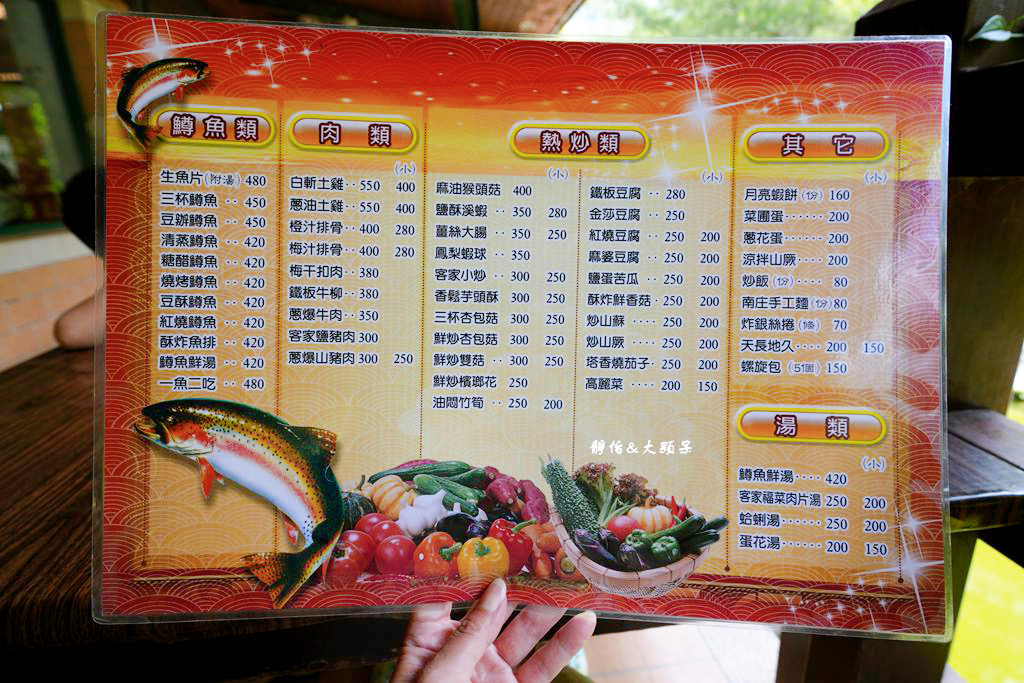 鱒魚類
生魚片(附湯) 480
三杯鱒魚‥450
豆瓣鱒魚‥450
清蒸鱒魚‥420
糖醋鱒魚‥420
燒烤鱒魚‥420
豆酥鱒魚‥420
紅燒鱒魚‥420
酥炸魚排‥420
鱒魚鮮湯‥420
一魚二吃‥480
肉類
(小)
白斬土雞‥550 400
蔥油土雞‥550 400
橙汁排骨‥400 280
梅汁排骨‥400 280
梅干扣肉‥380
鐵板牛柳‥380
蔥爆牛肉‥350
客家鹽豬肉300
蔥爆山豬肉300 250
熱炒類
(小)
麻油猴頭菇 400
鹽酥溪蝦‥350 280
薑絲大腸‥350 250
鳳梨蝦球‥350
客家小炒‥300 250
香鬆芋頭酥 300 250
三杯杏包菇 300 250
鮮炒杏包菇 300 250
鮮炒雙菇‥300 250
鮮炒檳瑯花 250
油悶竹筍‥250 200
(小)
鐵板豆腐‥280
金莎豆腐‥250
紅燒豆腐‥250 200
麻婆豆腐‥250 200
鹽蛋苦瓜‥250 200
酥炸鮮香菇‥250 200
炒山蘇‥‥250 200
炒山厥‥‥250 200
塔香燒茄子‥250 200
高麗菜‥‥200 150
其它
(小)
月亮蝦餅(份) 160
菜圃蛋‥‥‥200
蔥花蛋‥‥‥200
涼拌山厥‥‥200
炒飯(份)‥‥80
南庄手工麵(份)80
炸銀絲捲(條) 70
天長地久‥‥200 150
螺旋包(5個) 150
湯類
(小)
鱒魚鮮湯‥‥420
客家福菜肉片湯250 200
蛤蜊湯‥‥‥250 200
蛋花湯‥‥‥200 150
靜怡&大顆呆